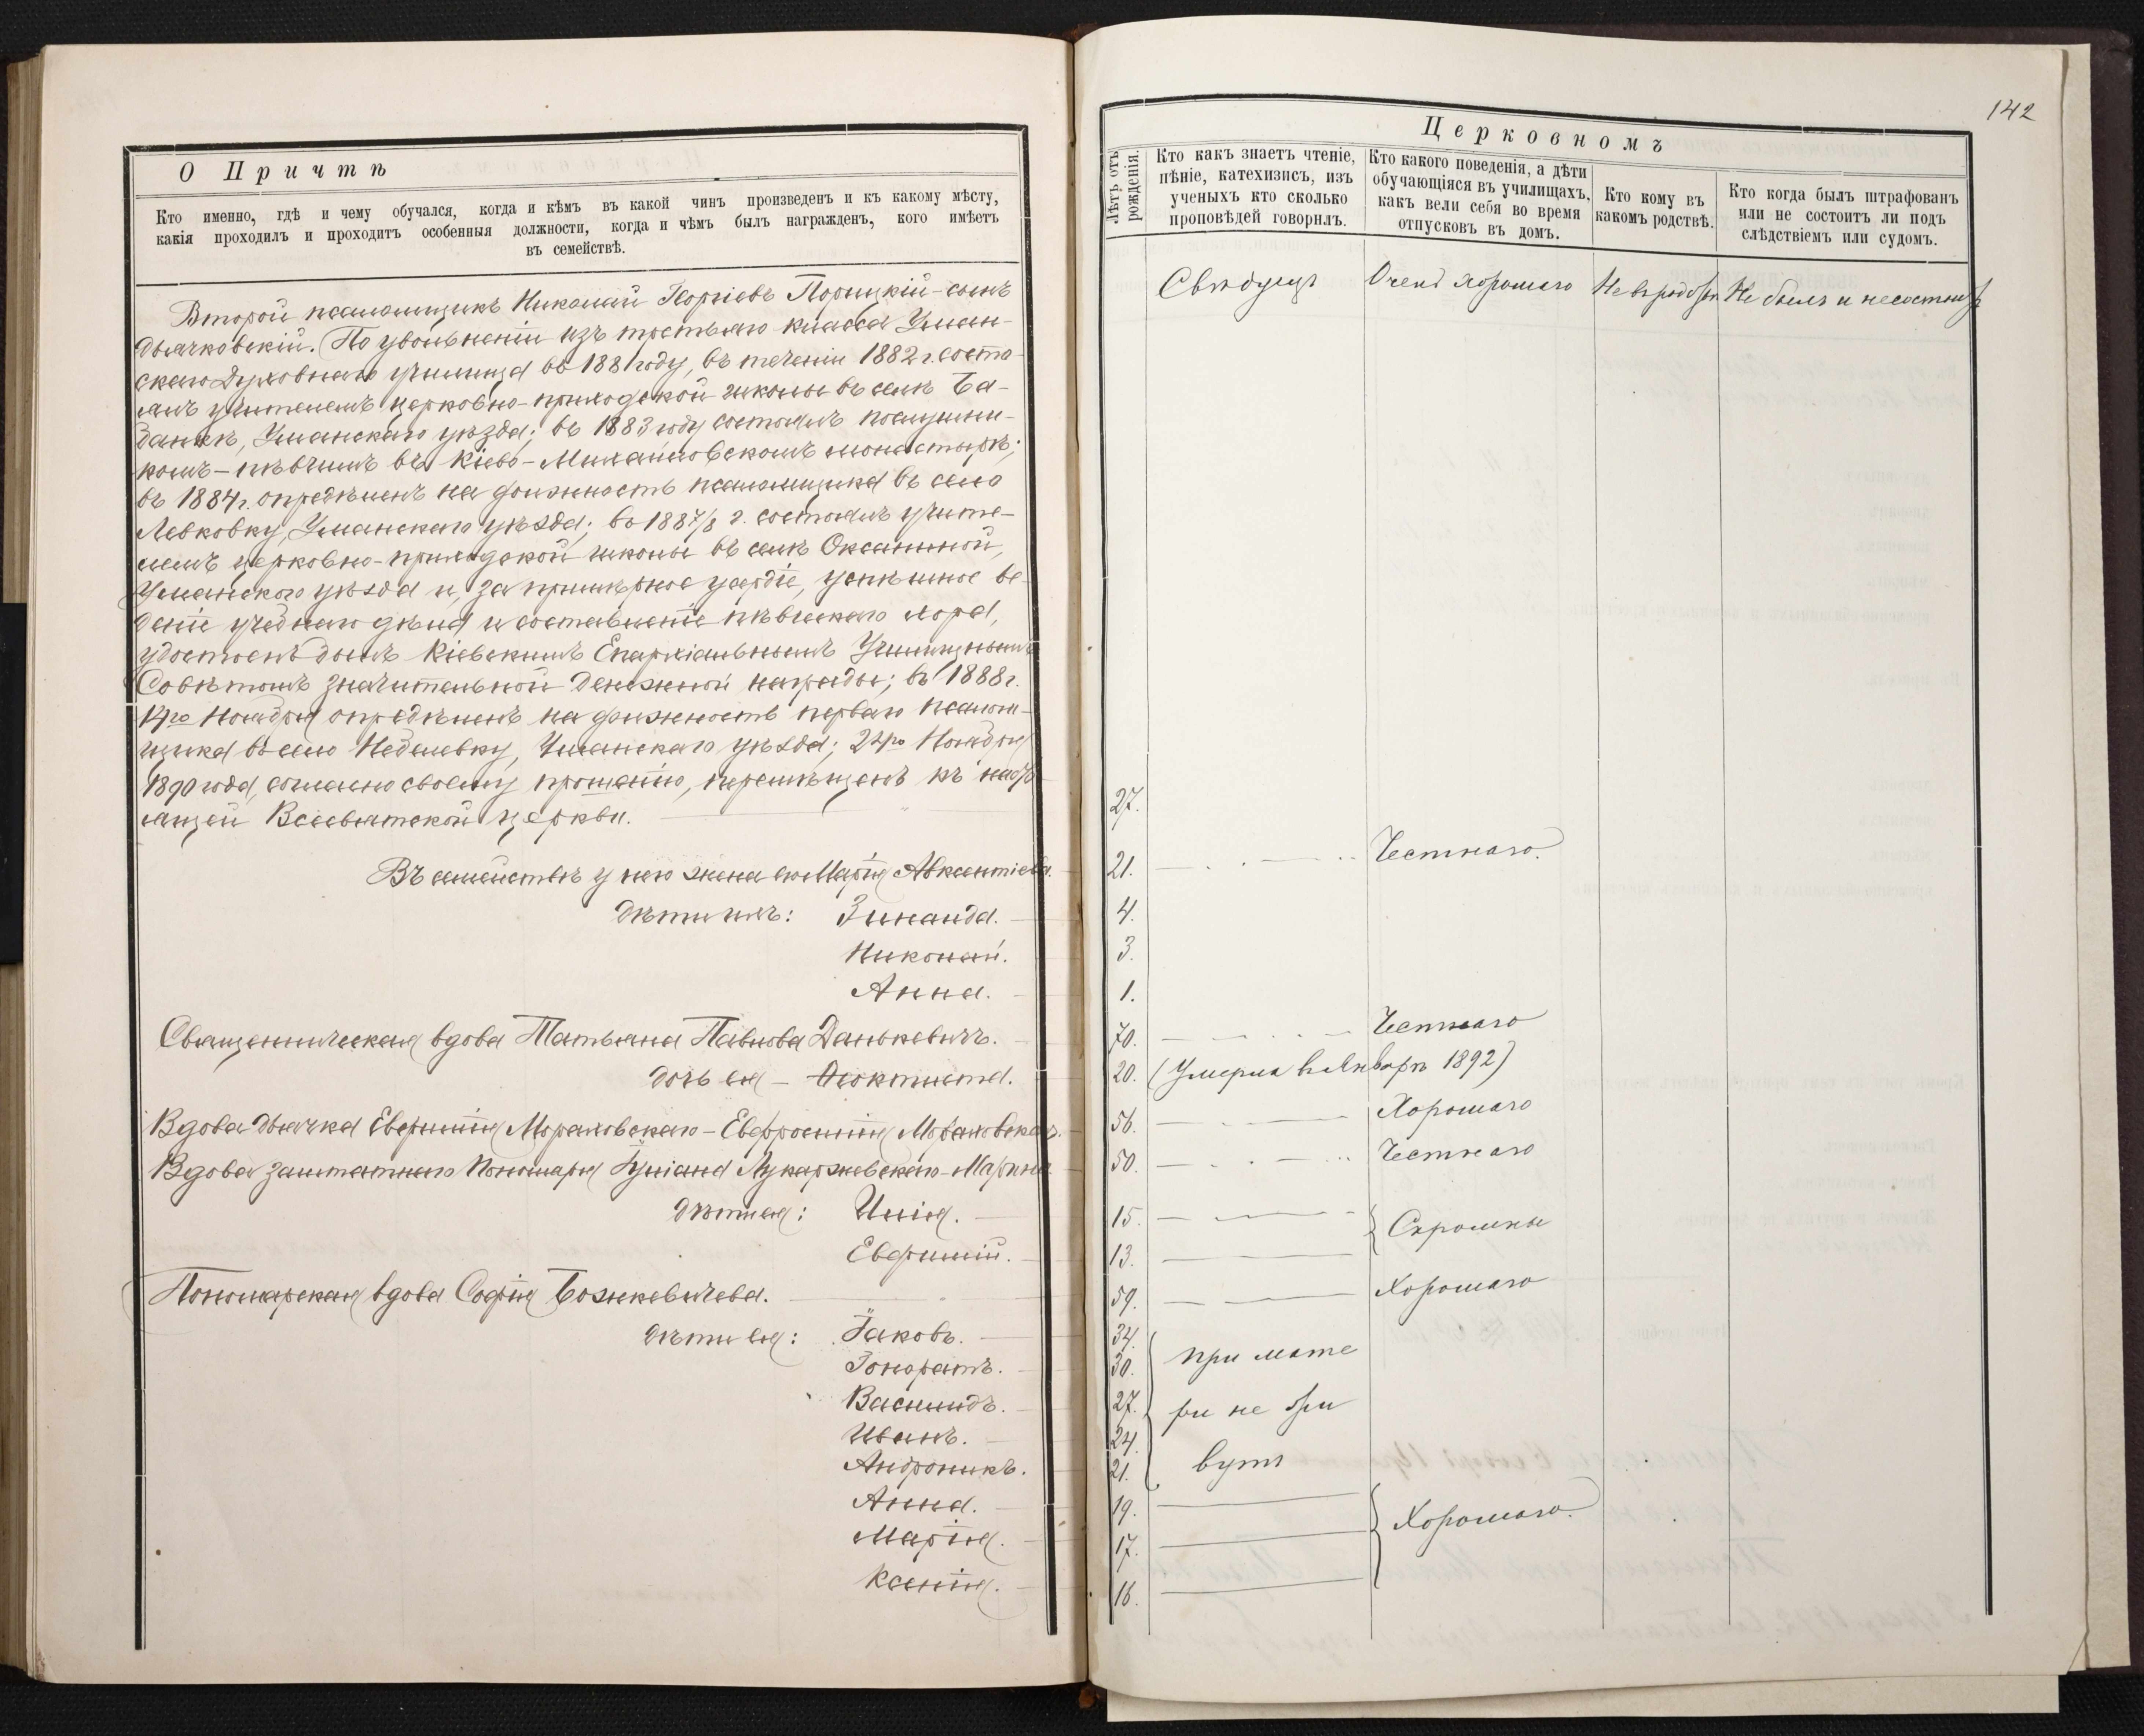 О Причтѣ
Кто именно, гдѣ и чему обучался, когда и кѣмъ въ какой чинъ произведенъ и къ какому мѣсту,
какія проходилъ и проходитъ особенныя должности, когда и чѣмъ былъ награжденъ, кого имѣетъ
въ семействѣ.
Второй псаломщикъ Николай Георгіевъ Порицкій – сынъ
дьячковскій. По увольненіи изъ третьяго класса Уман-
скаго Духовнаго училища въ 1881 году, въ теченіи 1882 г. состо-
ялъ учителемъ церковно-приходской школы въ селѣ Ба-
банкѣ, Уманскаго уѣзда; въ 1883 году состоялъ послушни-
комъ – пѣвчимъ въ Кіево-Михайловскомъ монастырѣ;
въ 1884 г. опредѣленъ на должность псаломщика въ село
Левковку, Уманскаго уѣзда; въ 1887/8 г. состоялъ учите-
лемъ церковно-приходской школы въ селѣ Оксаниной,
Уманскаго уѣзда и, за примѣрное усердіе, успѣшное ве-
деніе учебнаго дѣла и составленіе пѣвческаго хора,
удостоенъ былъ Кіевскимъ Епархіальнымъ Училищнымъ
Совѣтомъ значительной денежной награды; въ 1888 г.
Ноября опредѣленъ на должность перваго псалом-
щика въ село Неделевку, Уманскаго уѣзда; Ноября
1890 года, согласно своему прошенію, перемѣщенъ къ насто-
ящей Всесвятской церкви.
Въ семействѣ у него жена его Марія Авксентіева.
Дѣти ихъ: Зинаида.
Николай.
Анна.
Священническая вдова Татьяна Павлова Данькевичъ.
Дочь ея – Ѳеоктиста.
Вдова дьячка Евфимія Мораховскаго – Евфросинія Мораховская.
Вдова заштатнаго Пономаря Іуліана Лукаржевскаго – Марина
Дѣти ея: Юлія.
Евфимій.
Пономарская вдова Софія Божкевичева.
Дѣти ея: Іаковъ.
Гоноратъ.
Василидъ.
Иванъ.
Андроникъ.
Анна.
Марія.
Ксенія.
142
Церковномъ
Лѣтъ отъ рожденія.
Кто какъ знаетъ чтеніе,
пѣніе, катехизисъ, изъ
ученыхъ кто сколько
проповѣдей говорилъ.
Кто какого поведенія, а дѣти
обучающіяся въ училищахъ,
какъ вели себя во время
отпусковъ въ домъ.
Кто кому въ
какомъ родствѣ.
Кто когда былъ штрафованъ
или не состоитъ ли подъ
слѣдствіемъ или судомъ.
Свѣдущъ Очень хорошаго Не въ родствѣ Не былъ и не состоитъ
27.
21. Честнаго.
4.
3.
1.
70. Честнаго
20. (Умерла въ Январѣ 1892)
56. Хорошаго
50. Честнаго
15. Скромны
13.
59. Хорошаго
34.
30. при мате
27. ри не жи
24.
21. вутъ
19.
17. Хорошаго.
16.